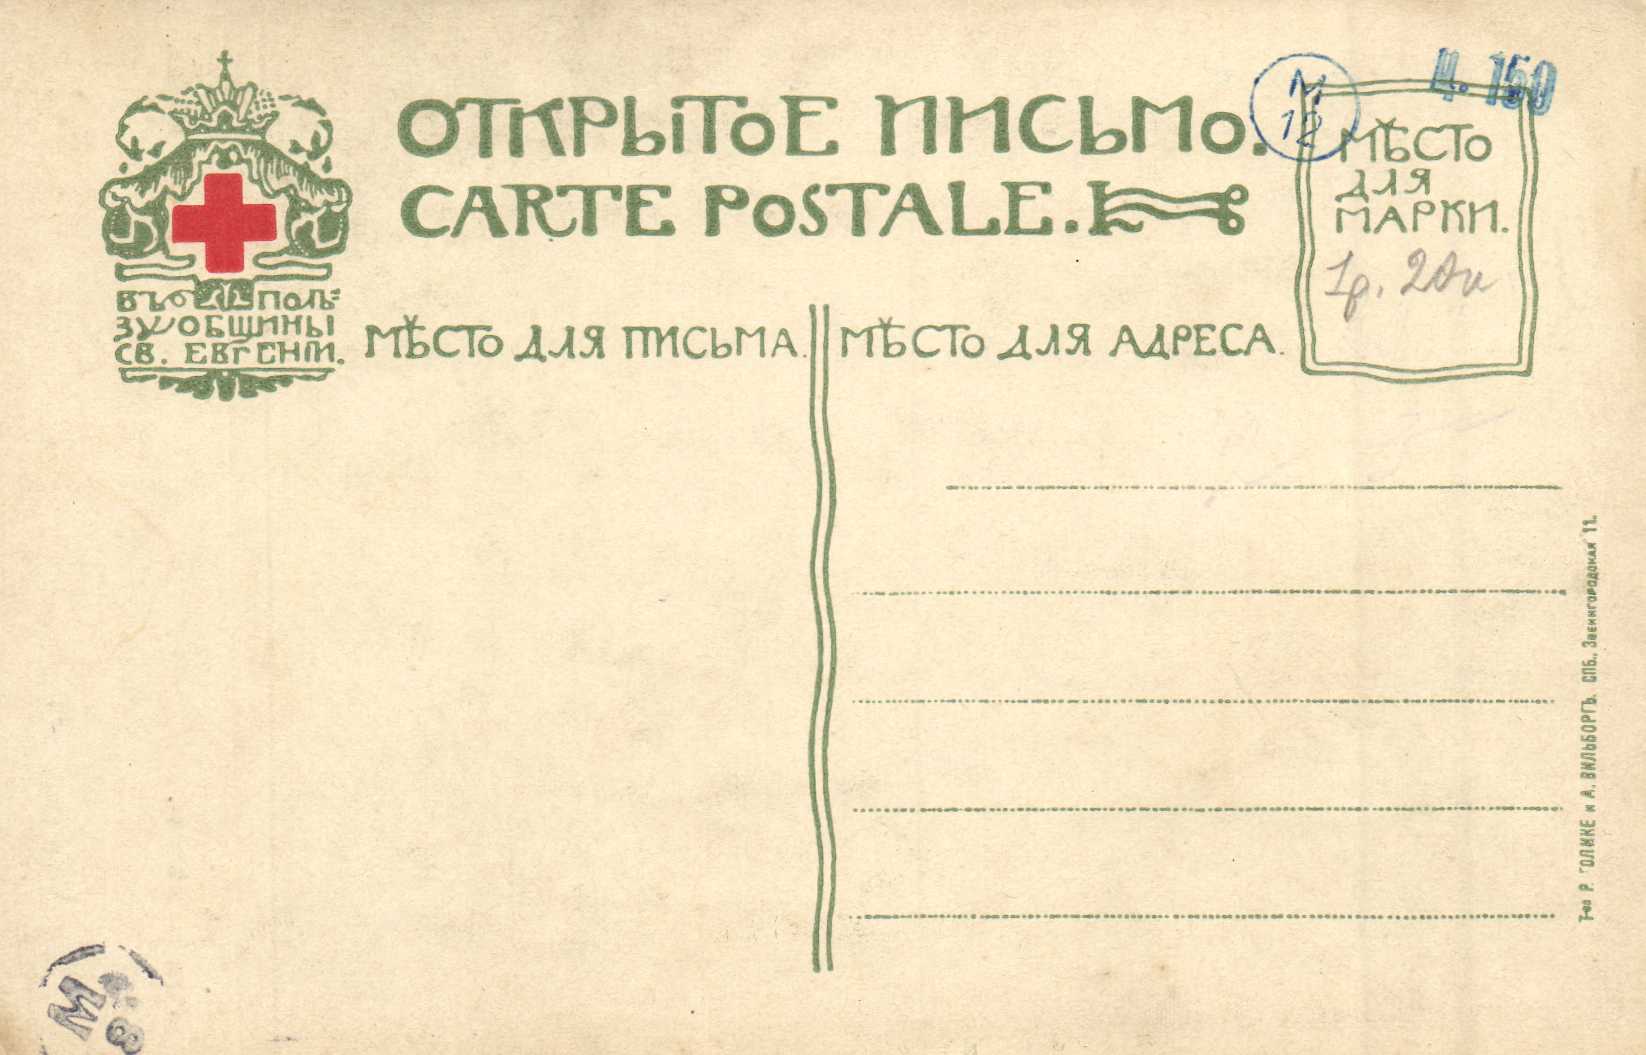 ОТКРЫТОЕ ПИСЬМО.
CARTE POSTALE.
ВЪ ПОЛЬ=
ЗУ ОБЩИНЫ
СВ. ЕВГЕНIИ.
МѢСТО ДЛЯ ПИСЬМА.
МѢСТО ДЛЯ АДРЕСА.
М
12
Ц. 150
МѢСТО
ДЛЯ
МАРКИ.
1р. 20к
Т-во Р. ГОЛИКЕ и А. ВИЛЬБОРГЪ. СПБ., Звенигородская 11.
М
8